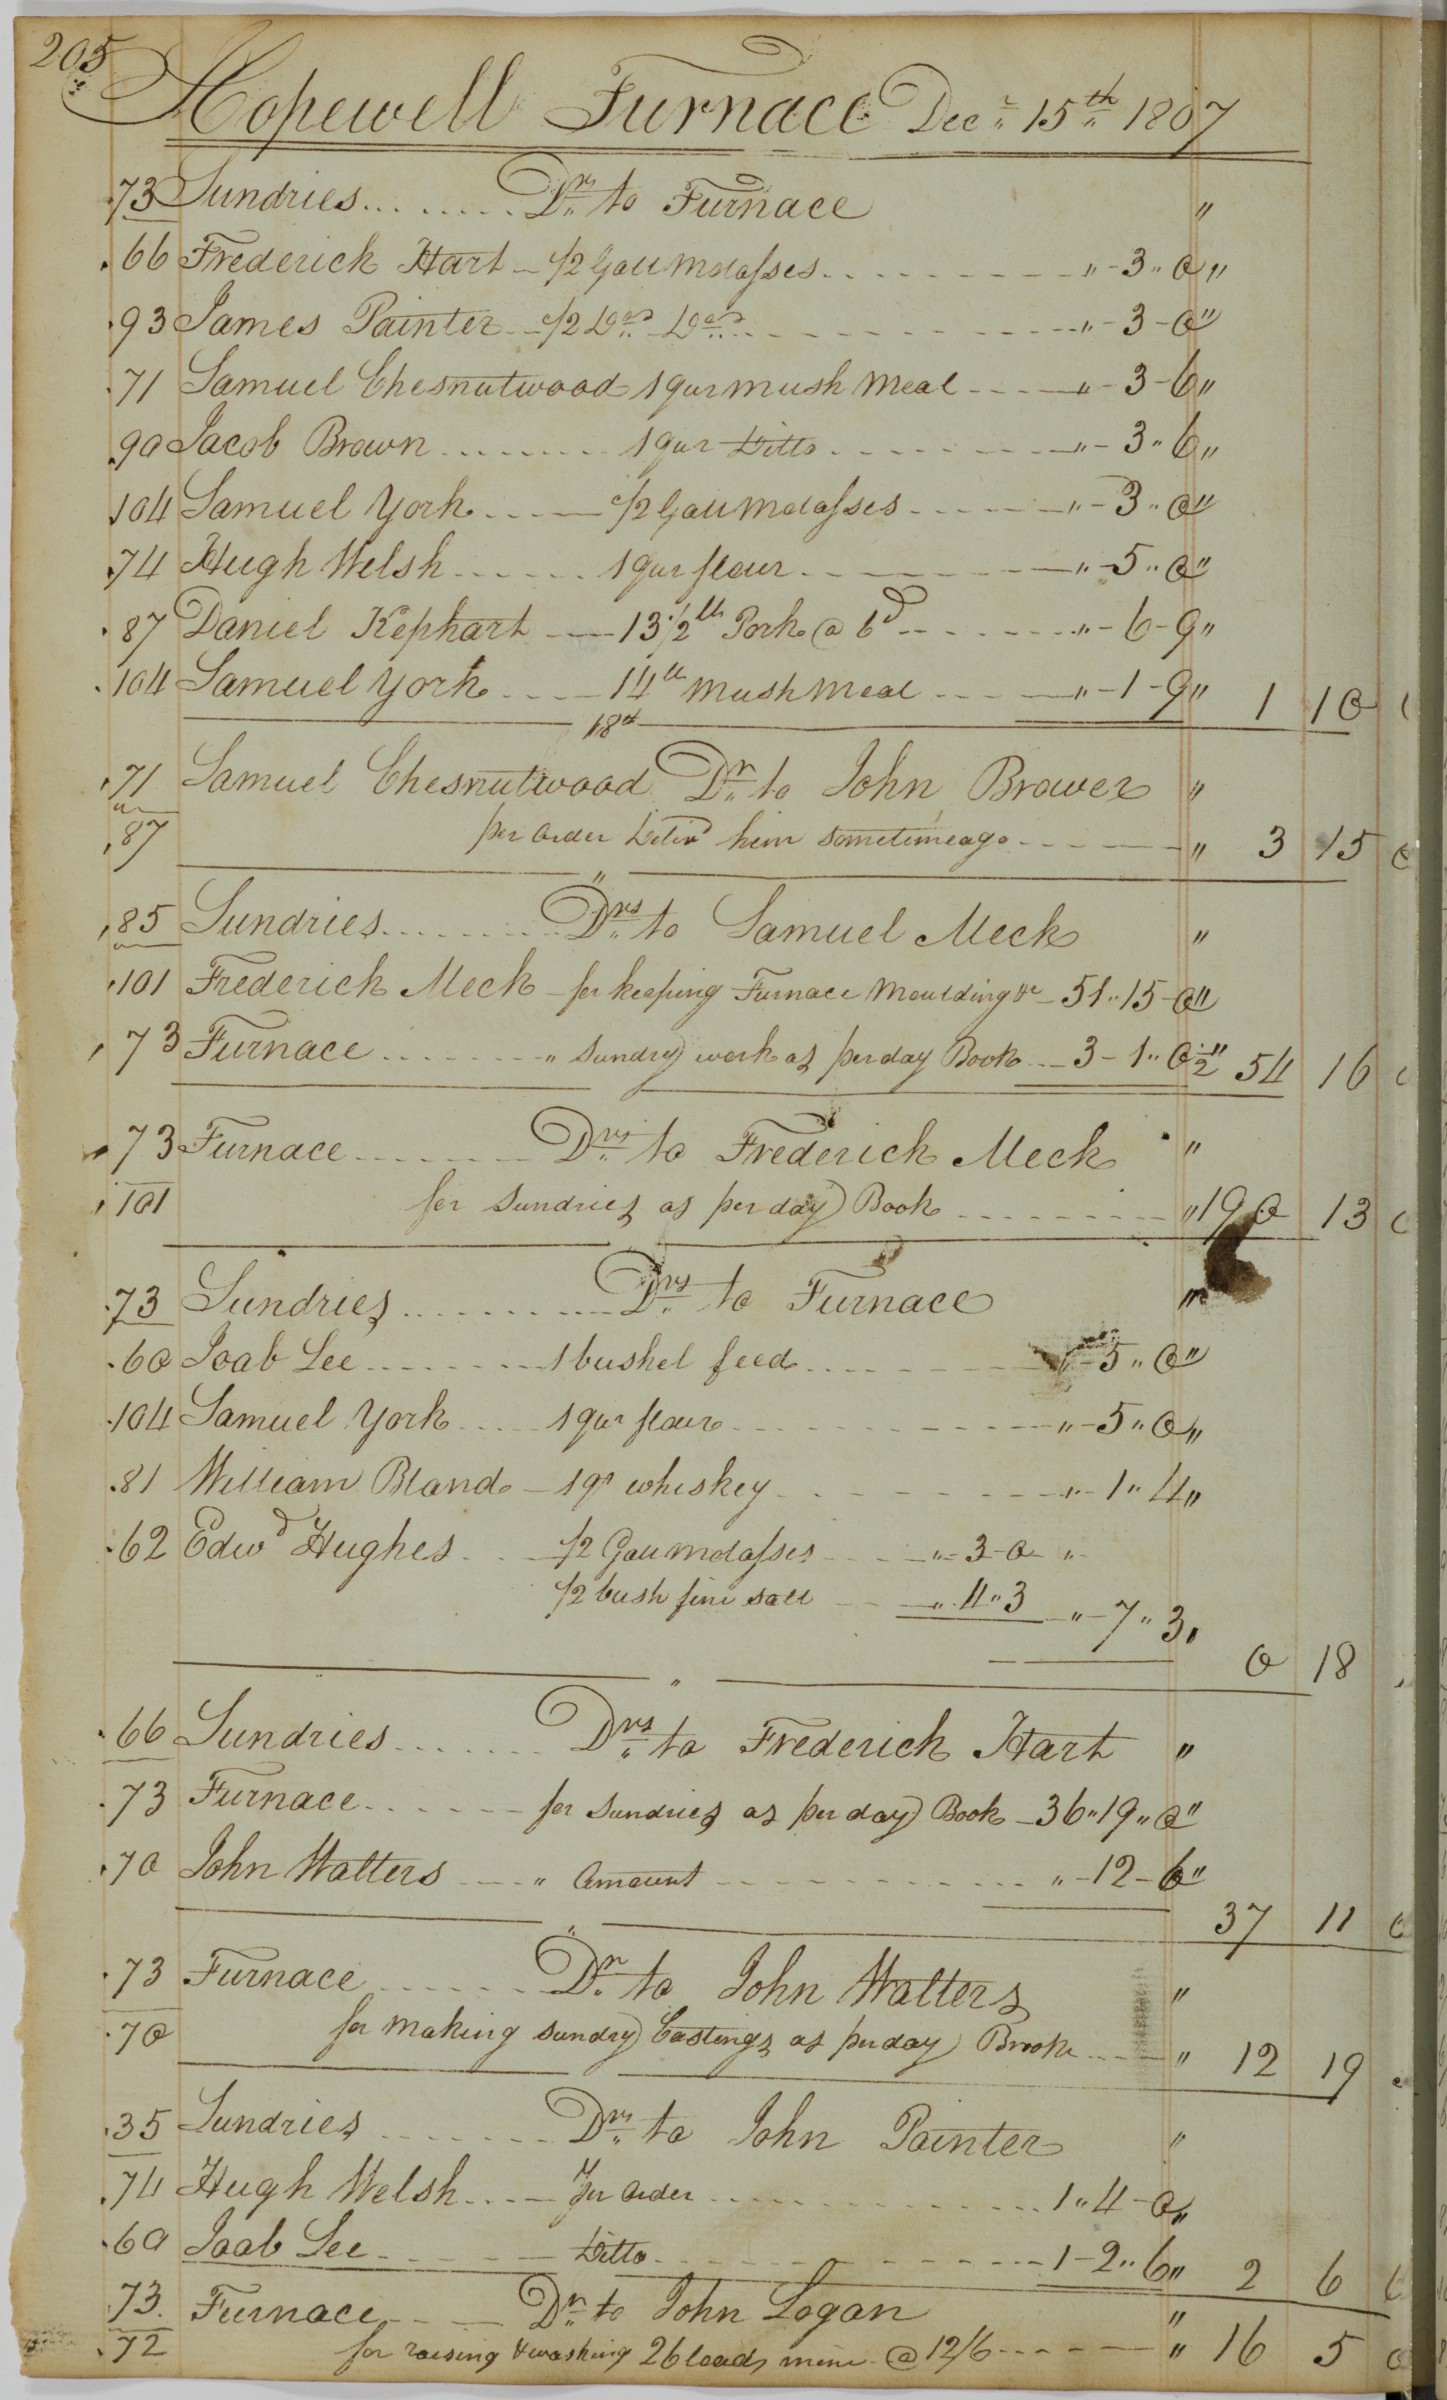 205
Hopewell Furnace Decr 15th 1807
73 Sundries ........ Drs to Furnace "
66 Frederick Hart - 1/2 Gall Molasses - - - " - 3 " 0 "
93 James Painter - 1/2 Do Do - - - " - 3 - 0 "
71 Samuel Chesnutwood 1 qur mush meal - - - " - 3 - 6 "
90 Jacob Brown ........ 1 qur Ditto - - - " - 3 " 6 "
104 Samuel York - - - 1/2 Gall Molasses - - - " - 3 " 0 "
74 Hugh Welsh ...... 1 qur flour - - - " - 5 " 0 "
87 Daniel Kephart - - 13 1/2 lb Pork @ 6d - - - " - 6 - 9 "
104 Samuel York - - - 14 lb mush meal - - - " - 1 - 9 " 1 10
18th
71 Samuel Chesnutwood Dr to John Brower "
87 per order Delivd him sometime ago - - - " 3 15 0
"
85 Sundries ........ Drs to Samuel Meck "
101 Frederick Meck - for keeping Furnace Moulding &c - 51 " 15 - 0 "
73 Furnace ........ " sundry work as per day Book - - 3 - 1 " 0 1/2 " 54 16
73 Furnace ........ Drs to Frederick Meck "
101 for Sundries as per day Book - - - " 190 13
73 Sundries ........ Drs to Furnace "
60 Joab Lee ........ 1 bushel feed - - - " - 5 " 0 "
104 Samuel York .... 1 qur flour - - - " - 5 " 0 "
81 William Bland - 1 qt whiskey - - - " - 1 " 4 "
62 Edwd Hughes - - 1/2 Gall molasses - - - " - 3 - 0 - "
1/2 bush fine salt - - " 4 " 3 - " - 7 " 3 "
0 18
"
66 Sundries ........ Drs to Frederick Hart "
73 Furnace ...... for Sundries as per day Book - 36 " 19 " 0 "
70 John Walters - - " Amount - - - " - 12 - 6 "
37 11
"
73 Furnace ...... Dr to John Walters "
70 for making sundry Castings as per day Book - - - " 12 19
35 Sundries ........ Drs to John Painter "
74 Hugh Welsh - - - per order ........ 1 " 4 - 0 "
60 Joab Lee - - - Ditto - - - 1 - 2 " 6 " 2 6
73 Furnace - - - Dr to John Logan "
72 for raising & washing 26 loads mine @ 12/6 - - - " 16 5 0